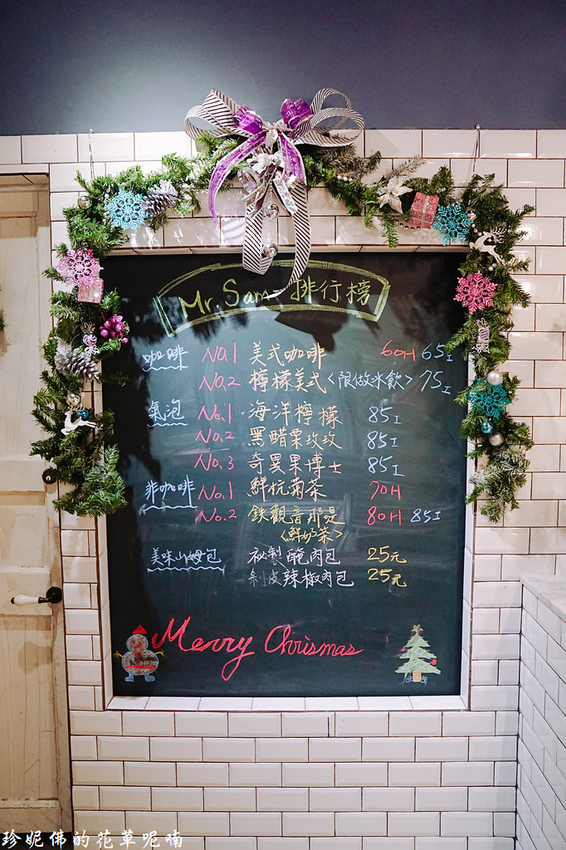 Mr. Sam 排行榜
咖啡 No.1 美式咖啡 60H 65I
No.2 檸檬美式<限做冰飲> 75I
氣泡 No.1 海洋檸檬 85I
No.2 黑醋栗玫玫 85I
No.3 奇異果博士 85I
非咖啡 No.1 鮮杭菊茶 70H
No.2 鐵觀音那是 80H 85I
<鮮奶茶>
美味山姆包 祕製醃肉包 25元
剝皮辣椒肉包 25元
Merry Chrismas
珍妮佛的花草呢喃